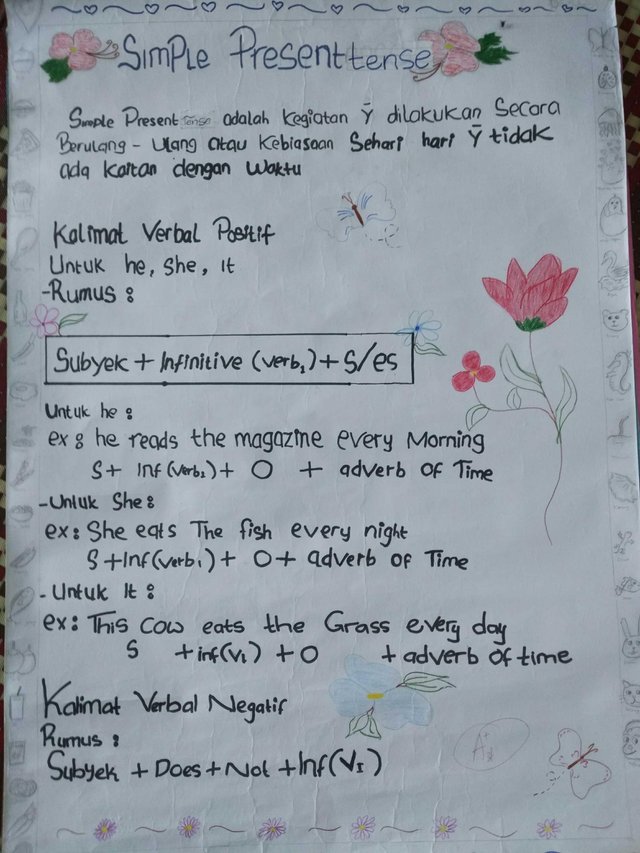 Simple Present tense
Simple Present Tense adalah kegiatan Ȳ dilakukan Secara
Berulang - Ulang atau Kebiasaan Sehari hari Ȳ tidak
ada kaitan dengan Waktu
Kalimat Verbal Positif
Untuk he, She, It
-Rumus :
Subyek + Infinitive (Verb₁) + S/es
Untuk he :
ex : he reads the magazine every Morning
S + Inf (Verb₁) + O + adverb of Time
- Untuk She :
ex : She eats The fish every night
S + Inf (Verb₁) + O + adverb of Time
- Untuk It :
ex : This Cow eats the Grass every day
S + inf (V₁) + O + adverb of time
Kalimat Verbal Negatif
Rumus :
Subyek + Does + Not + Inf (V₁)
A+